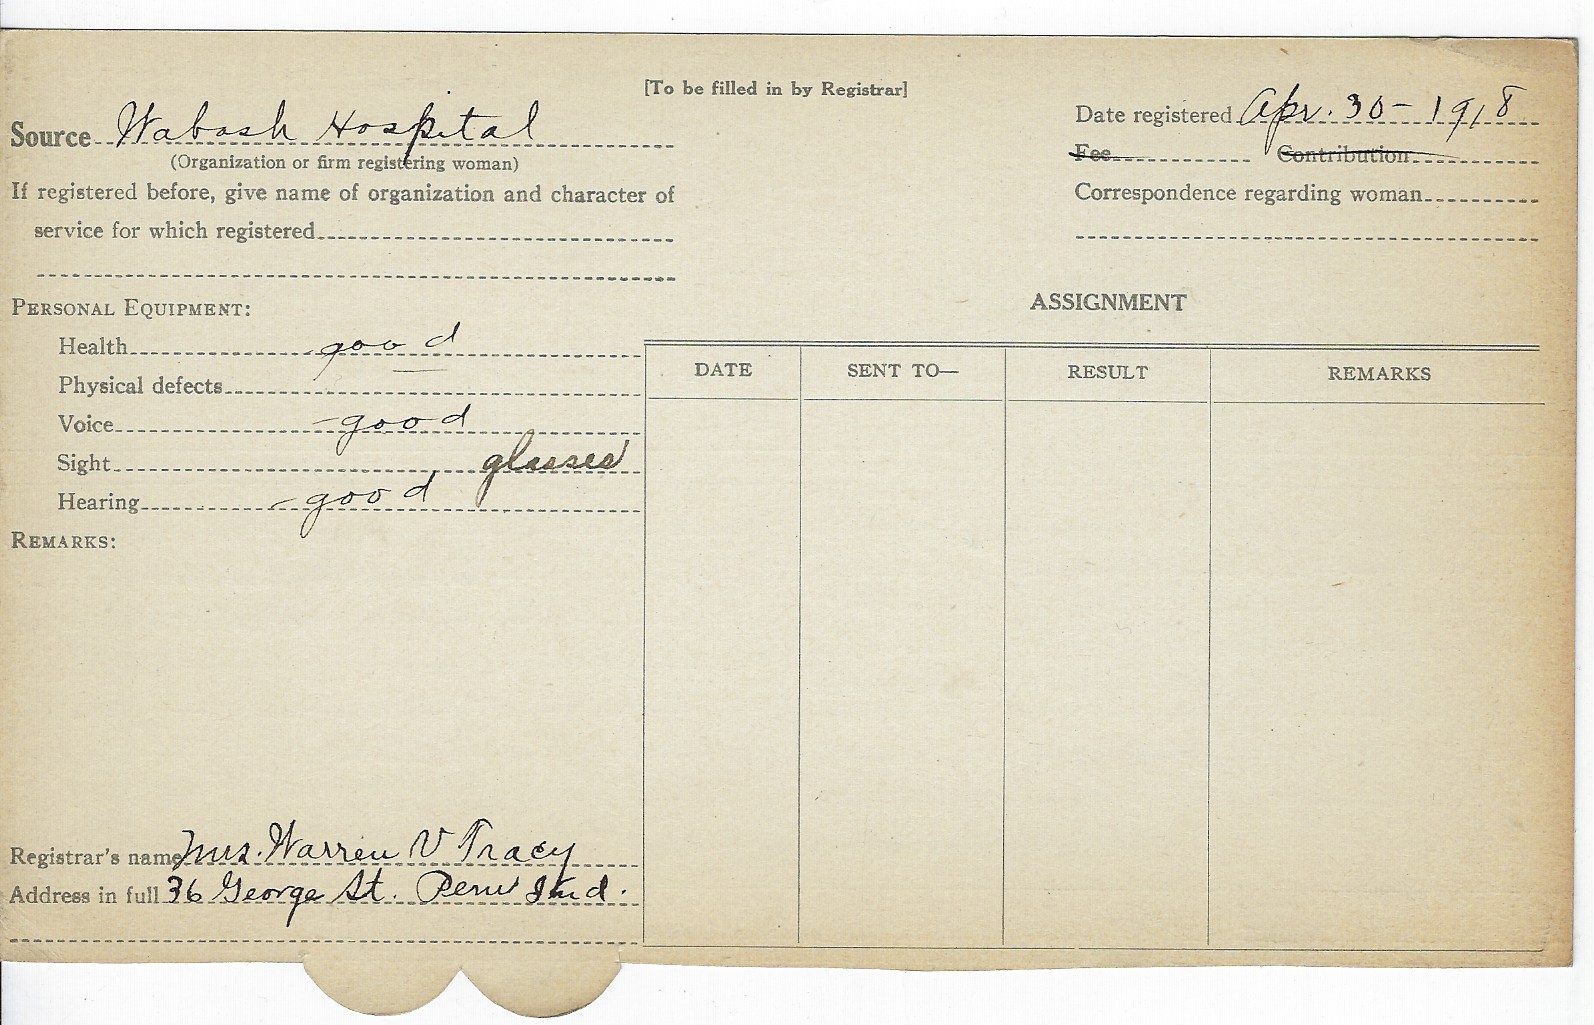 [To be filled in by Registrar]
Source Wabash Hospital
(Organization or firm registering woman)
If registered before, give name of organization and character of
service for which registered
Date registered Apr. 30 - 1918
Fee Contribution
Correspondence regarding woman
PERSONAL EQUIPMENT:
Health good
Physical defects
Voice good
Sight glasses
Hearing good
REMARKS:
Registrar's name Mrs. Warren V Tracy
Address in full 36 George St. Peru Ind.
ASSIGNMENT
DATE SENT TO— RESULT REMARKS